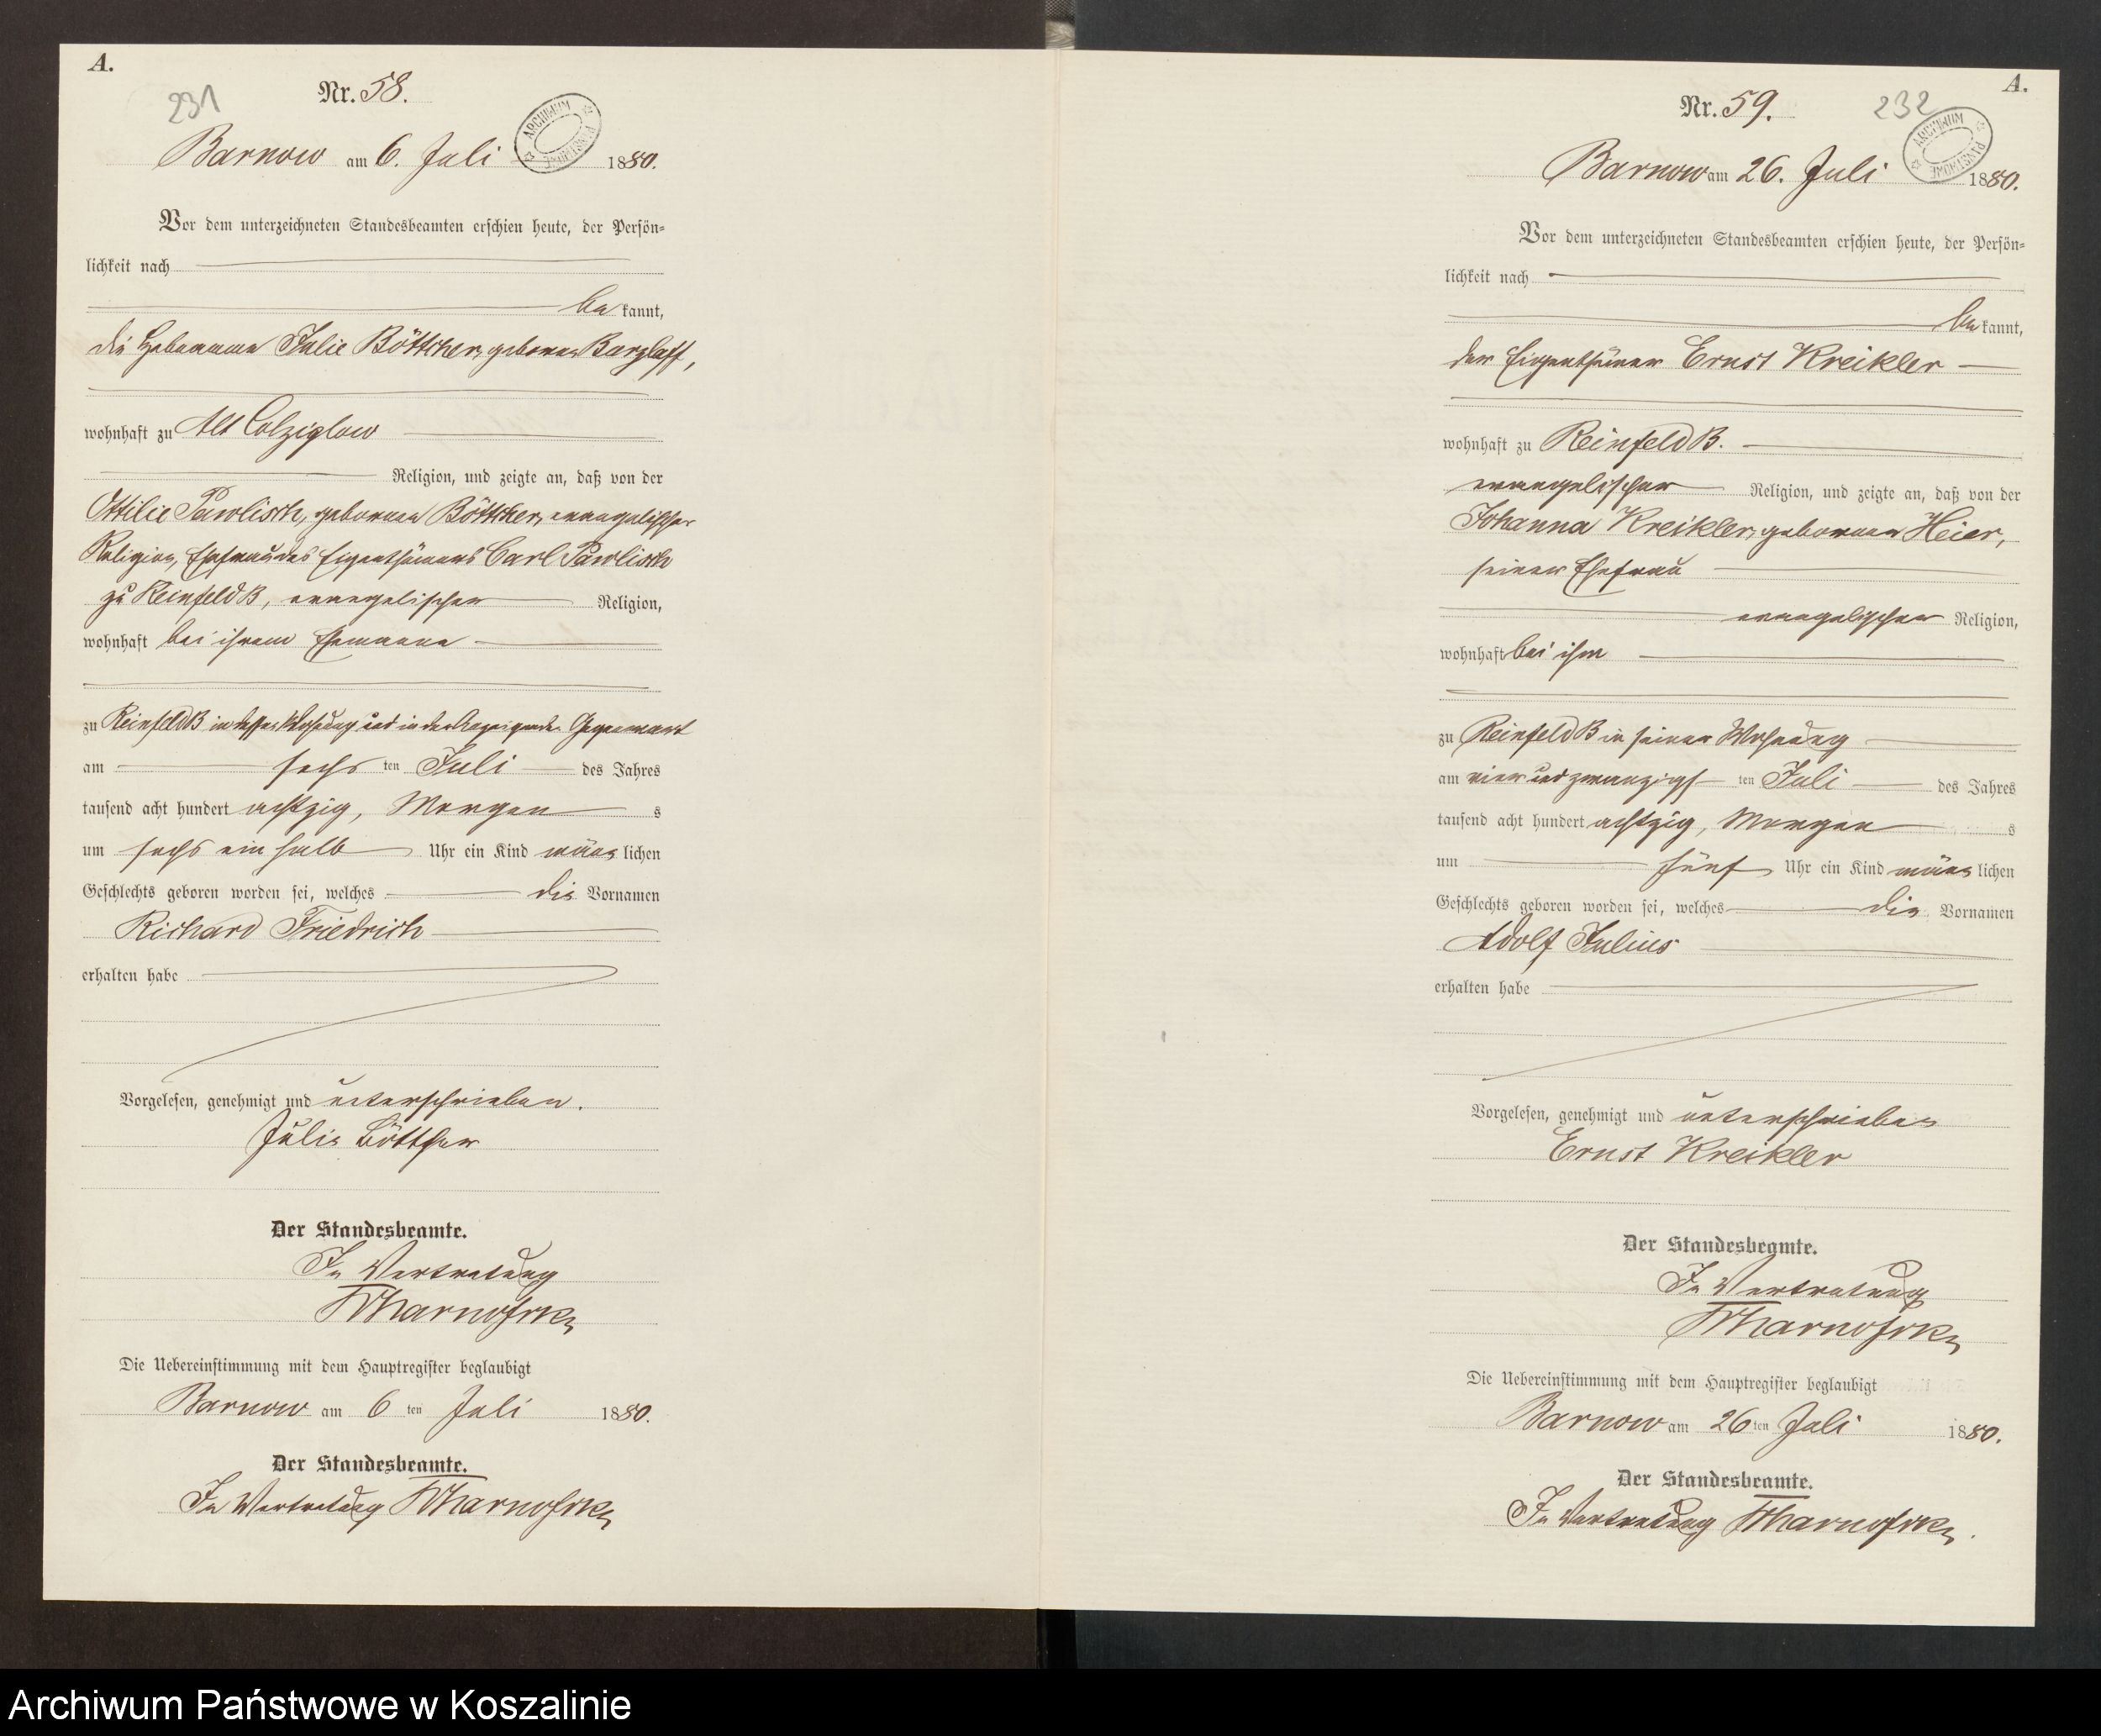 A.
231
Nr. 58.
ARCHIWUM PAŃSTWOWE
Barnow am 6. Juli 1880.
Vor dem unterzeichneten Standesbeamten erschien heute, der Persön-
lichkeit nach
be kannt,
die Hebamme Julie Böttcher, geborne Barzlaff,
wohnhaft zu Alt Colziglow
Religion, und zeigte an, daß von der
Ottilie Pawlisch, geborenen Böttcher, evangelischer
Religion, Ehefrau des Eigenthümers Carl Pawlisch
zu Reinfeld B, evangelischer Religion,
wohnhaft bei ihrem Ehemanne
zu Reinfeld B in dessen Wohnung und in der Anzeigenden Gegenwart
am sechs ten Juli des Jahres
tausend acht hundert achtzig, Morgen s
um sechs ein halb Uhr ein Kind männ lichen
Geschlechts geboren worden sei, welches die Vornamen
Richard Friedrich
erhalten habe
Vorgelesen, genehmigt und unterschrieben.
Julie Böttcher
Der Standesbeamte.
In Vertretung
Die Uebereinstimmung mit dem Hauptregister beglaubigt
Barnow am 6 ten Juli 1880.
Der Standesbeamte.
In Vertretung
A.
232
Nr. 59.
ARCHIWUM PAŃSTWOWE
Barnow am 26. Juli 1880.
Vor dem unterzeichneten Standesbeamten erschien heute, der Persön-
lichkeit nach
be kannt,
der Eigenthümer Ernst Kreikler
wohnhaft zu Reinfeld B.
evangelischer Religion, und zeigte an, daß von der
Johanna Kreikler, geborenen Heier,
seiner Ehefrau
evangelischer Religion,
wohnhaft bei ihm
zu Reinfeld B in seiner Wohnung
am vier und zwanzigs ten Juli des Jahres
tausend acht hundert achtzig, Morgen s
um fünf Uhr ein Kind männ lichen
Geschlechts geboren worden sei, welches die Vornamen
Adolf Julius
erhalten habe
Vorgelesen, genehmigt und unterschrieben
Ernst Kreikler
Der Standesbeamte.
In Vertretung
Die Uebereinstimmung mit dem Hauptregister beglaubigt
Barnow am 26 ten Juli 1880.
Der Standesbeamte.
In Vertretung
Archiwum Państwowe w Koszalinie